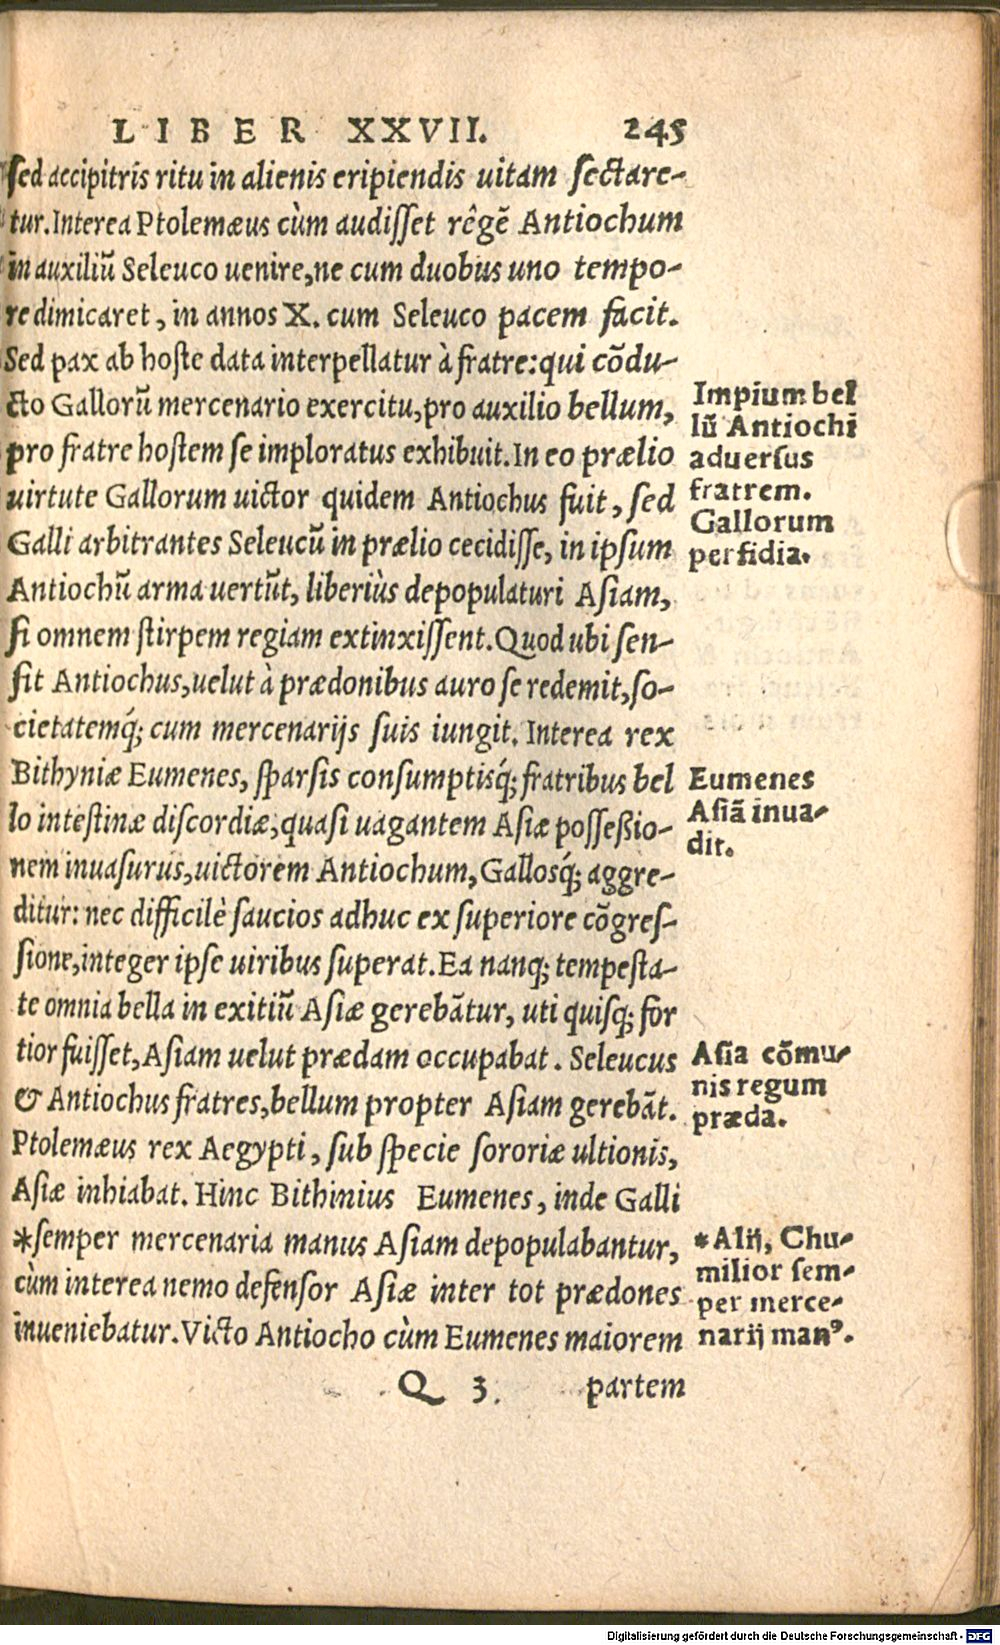 LIBER XXVII. 245
sed accipitris ritu in alienis eripiendis uitam sectare-
tur. Interea Ptolemæus cùm audisset rêgẽ Antiochum
in auxiliũ Seleuco uenire, ne cum duobus uno tempo-
re dimicaret, in annos X. cum Seleuco pacem facit.
Sed pax ab hoste data interpellatur à fratre: qui cõdu-
cto Gallorũ mercenario exercitu, pro auxilio bellum,
pro fratre hostem se imploratus exhibuit. In eo prælio
uirtute Gallorum uictor quidem Antiochus fuit, sed
Galli arbitrantes Seleucũ in prælio cecidisse, in ipsum
Antiochũ arma uertũt, liberiùs depopulaturi Asiam,
si omnem stirpem regiam extinxissent. Quod ubi sen-
sit Antiochus, uelut à prædonibus auro se redemit, so-
cietatemq́; cum mercenarijs suis iungit. Interea rex
Bithyniæ Eumenes, sparsis consumptisq́; fratribus bel
lo intestinæ discordiæ, quasi uagantem Asiæ posseßio-
nem inuasurus, uictorem Antiochum, Gallosq́; aggre-
ditur: nec difficilè saucios adhuc ex superiore cõgres-
sione, integer ipse uiribus superat. Ea nanq; tempesta-
te omnia bella in exitiũ Asiæ gerebãtur, uti quisq; for
tior fuisset, Asiam uelut prædam occupabat. Seleucus
& Antiochus fratres, bellum propter Asiam gerebãt.
Ptolemæus rex Aegypti, sub specie sororiæ ultionis,
Asiæ inhiabat. Hinc Bithinius Eumenes, inde Galli
*semper mercenaria manus Asiam depopulabantur,
cùm interea nemo defensor Asiæ inter tot prædones
inueniebatur. Victo Antiocho cùm Eumenes maiorem
Q 3. partem
Impium bel
lũ Antiochi
aduersus
fratrem.
Gallorum
perfidia.
Eumenes
Asiã inua-
dit.
Asia cõmu-
nis regum
præda.
*Alij, Chu-
milior sem-
per merce-
narij man⁹.
Digitalisierung gefördert durch die Deutsche Forschungsgemeinschaft - DFG